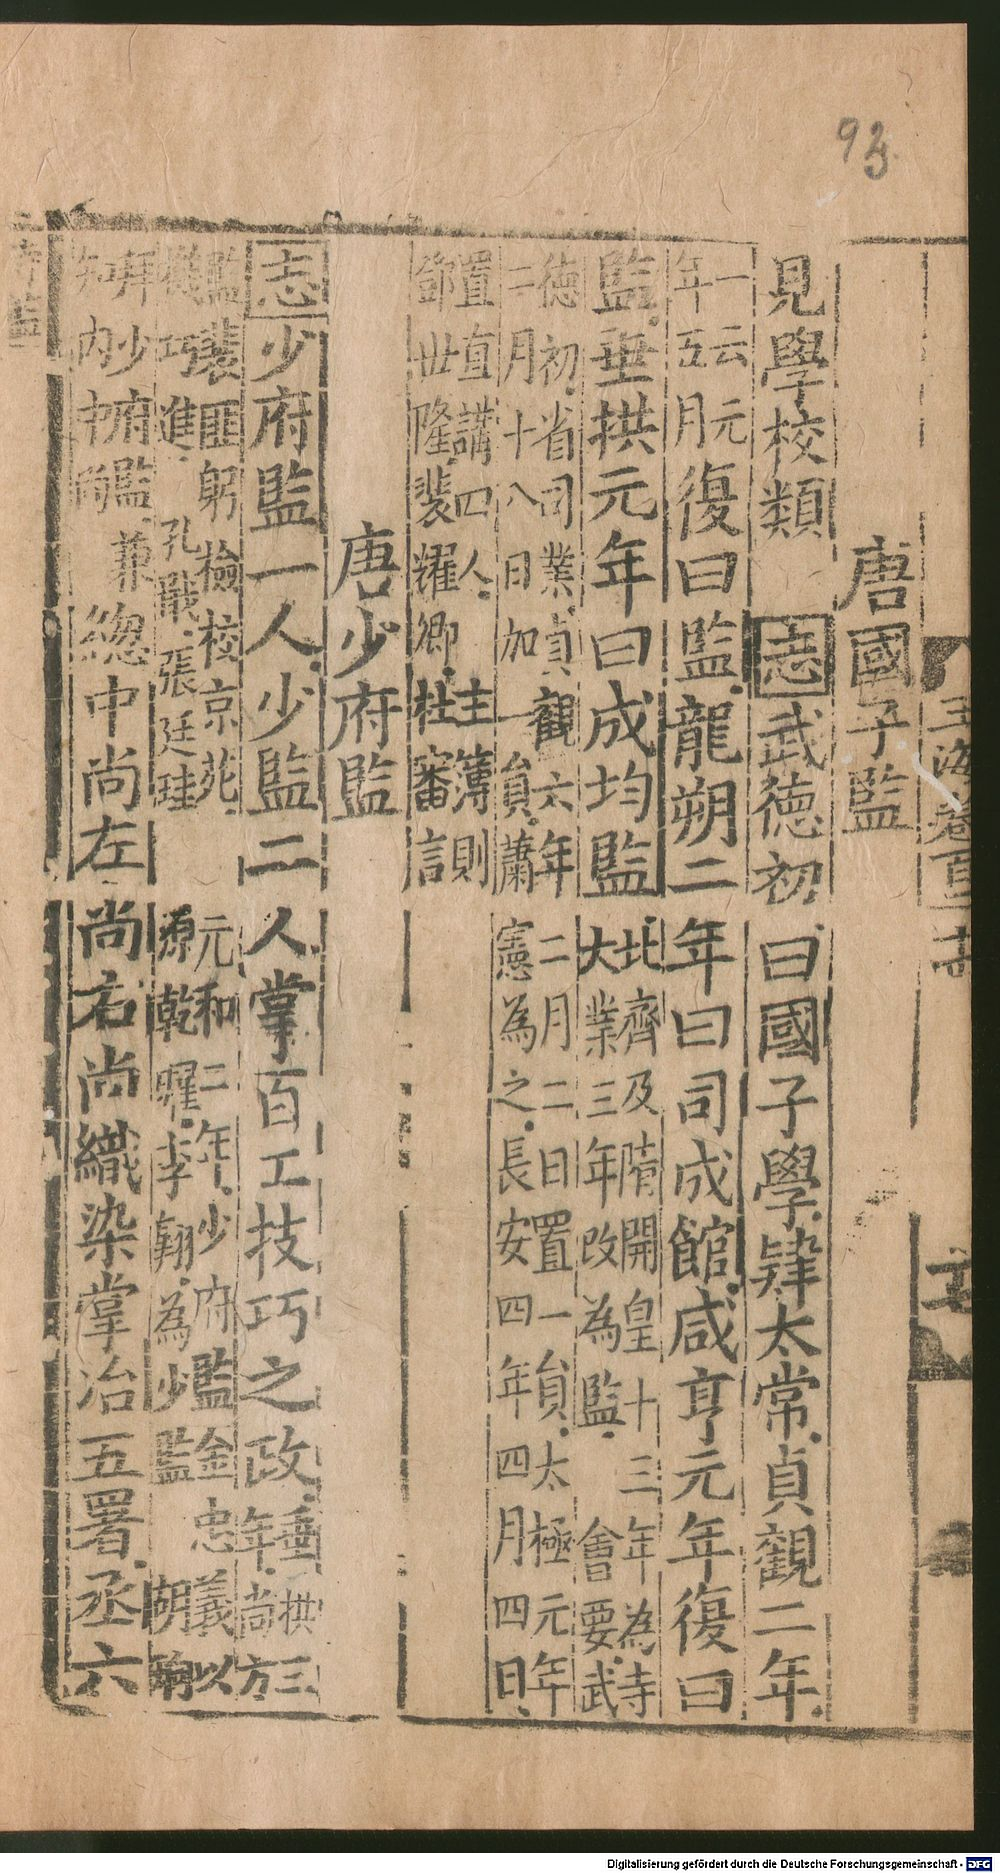 93
玉海卷百二十
唐國子監
見學校類 志武德初曰國子學隸太常貞觀二年
一云元年五月復曰監龍朔二年曰司成館咸亨元年復曰
監垂拱元年曰成均監北齊及隋開皇十三年為寺大業三年改為監會要武
德初省司業貞觀六年二月二日置一員太極元年二月十八日加一員蕭憲為之長安四年四月四日
置直講四人主簿則鄧世隆裴耀卿杜審言
唐少府監
志少府監一人少監二人掌百工技巧之政垂拱三年尚方
監裴匪躬檢校京苑元和二年少府監金忠義以機巧進孔戢張廷珪源乾曜李翱為少監胡珦
拜少府監兼知內中尚總中尚左尚右尚織染掌冶五署丞六
Digitalisierung gefördert durch die Deutsche Forschungsgemeinschaft - DFG